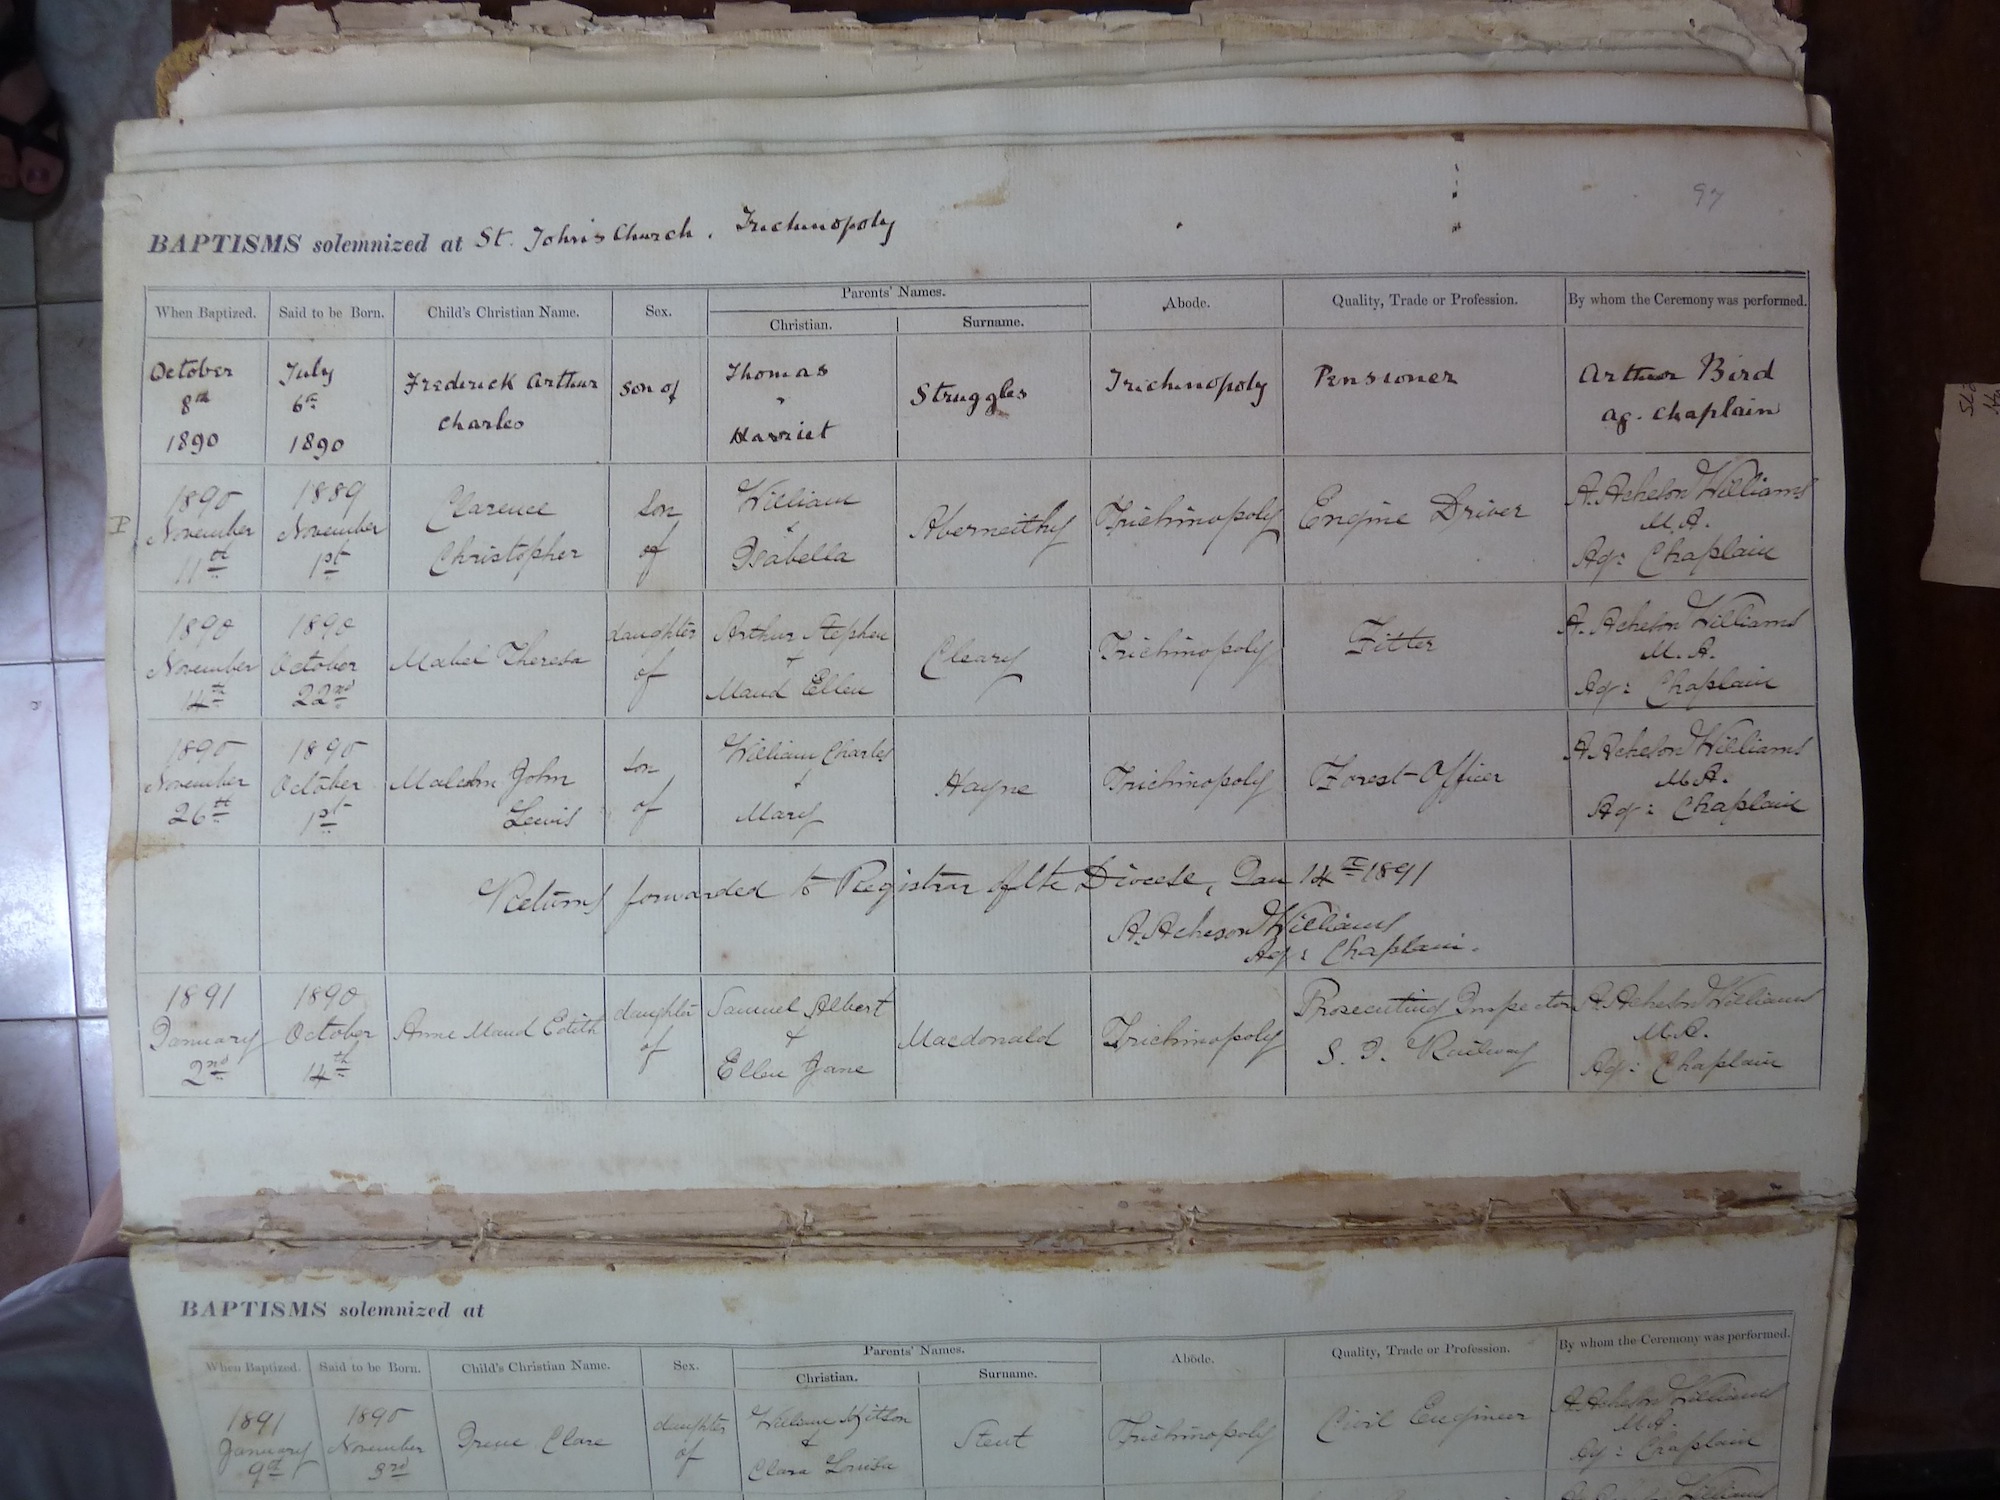 97
BAPTISMS solemnized at St. John's Church, Trichinopoly
When Baptized. Said to be Born. Child's Christian Name. Sex. Parents' Names. Christian. Surname. Abode. Quality, Trade or Profession. By whom the Ceremony was performed.
October 8th 1890 July 6th 1890 Frederick Arthur Charles son of Thomas " Harriet Struggles Trichinopoly Pensioner Arthur Bird ag. Chaplain
1890 November 11th 1889 November 1st Clarence Christopher Son of William & Isabella Aberneithy Trichinopoly Engine Driver A. Acheson Williams M.A. Ag: Chaplain
1890 November 14th 1890 October 22nd Mabel Theresa daughter of Arthur Stephen + Maud Ellen Cleary Trichinopoly Fitter A. Acheson Williams M.A. Ag: Chaplain
1890 November 26th 1890 October 1st Malcolm John Lewis Son of William Charles + Mary Hayne Trichinopoly Forest-Officer A. Acheson Williams M.A. Ag: Chaplain
Returns forwarded to Registrar of the Diocese, Jan 14th 1891
A. Acheson Williams
Ag: Chaplain.
1891 January 2nd 1890 October 14th Anne Maud Edith daughter of Samuel Albert + Ellen Jane Macdonald Trichinopoly Prosecuting Inspector S. I. Railway A. Acheson Williams M.A. Ag: Chaplain
BAPTISMS solemnized at
When Baptized. Said to be Born. Child's Christian Name. Sex. Parents' Names. Christian. Surname. Abode. Quality, Trade or Profession. By whom the Ceremony was performed.
1891 January 9th 1890 November 3rd Irene Clare daughter of William Kitson & Clara Louisa Stent Trichinopoly Civil Engineer A. Acheson Williams M.A. Ag: Chaplain